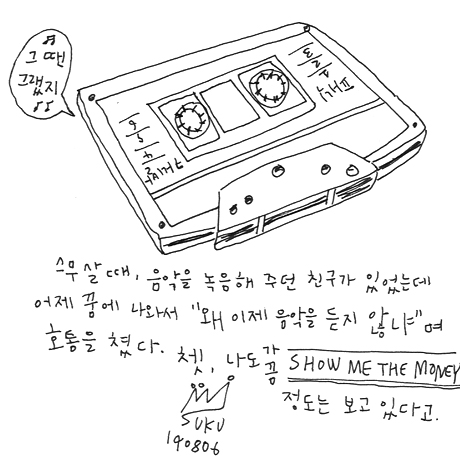 그 땐
그랬지
스무 살 때, 음악을 녹음해 주던 친구가 있었는데
어제 꿈에 나와서 "왜 이제 음악을 듣지 않냐"며
호통을 쳤다. 쳇, 나도 가끔 SHOW ME THE MONEY
정도는 보고 있다고.
SUKU
190806